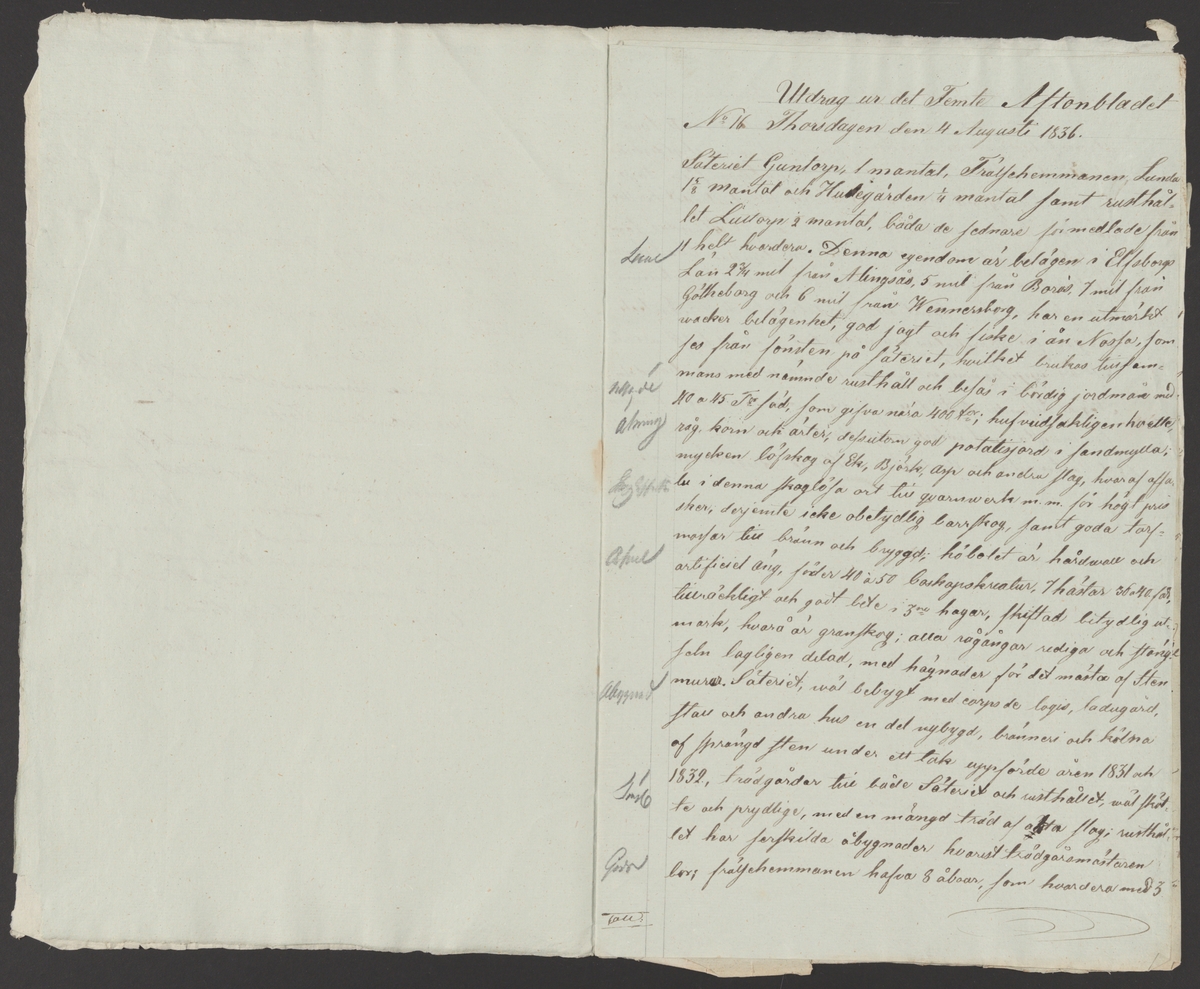 Utdrag ur det Femte Aftonbladet
No 16 Thorsdagen den 4 Augusti 1836.
Säteriet Guntorp, 1 mantal, Frälsehemmanen, Lunda
mantal och Hulegården 1/4 mantal samt rusthål-
let 1/2 mantal, båda de sednare förmedlade från
1 helt hvardera. Denna egendom är belägen i Elfsborgs
Län 2 3/4 mil från Alingsås, 5 mil från Borås, 7 mil från
Götheborg och 6 mil från Wennersborg, har en utmärkt
wacker belägenhet, god jagt och fiske i ån Nossa, som
ses från fönsten på säteriet, hvilket brukas tillsam-
mans med nämnde rusthåll och besås i bördig jordmån med
40 a 45 Tr säd, som gifva nära 400 tor; hufvudsakligen hvete,
råg, korn och ärter; dessutom god potatisjord i sandmylla;
mycken löfskog af Ek, Björk, Asp och andra slag, hvaraf
i denna skoglösa ort till qvarnwerk m.m. för högt pris
sker; derjemte icke obetydlig barrskog, samt goda torf-
mossar till bränn och bryggd; höbolet är hårdwall och
artificiel äng, föder 40 à 50 boskapskreatur, 7 hästar 30 a 40 får,
tillräckligt och godt bete i 3ne hagar, skiftad betydlig ut-
mark, hvarå är granskog; alla rågångar rediga och stängs
seln lagligen delad, med hägnader för det mästa af Sten
murar. Säteriet, wäl bebygt med corps de logis, ladugård,
stall och andra hus en del nybygd, bränneri och kölna
af sprängd sten under ett tak uppförde åren 1831 och
1832, trädgårdar till både Säteriet och rusthållet, wäl sköt-
te och prydlige, med en mängd träd af alla slag; rusthål-
let har serskilda åbygnader hvarest trädgårdsmästaren
bor; frälsehemmanen hafva 8 åboar, som hvardera med 3